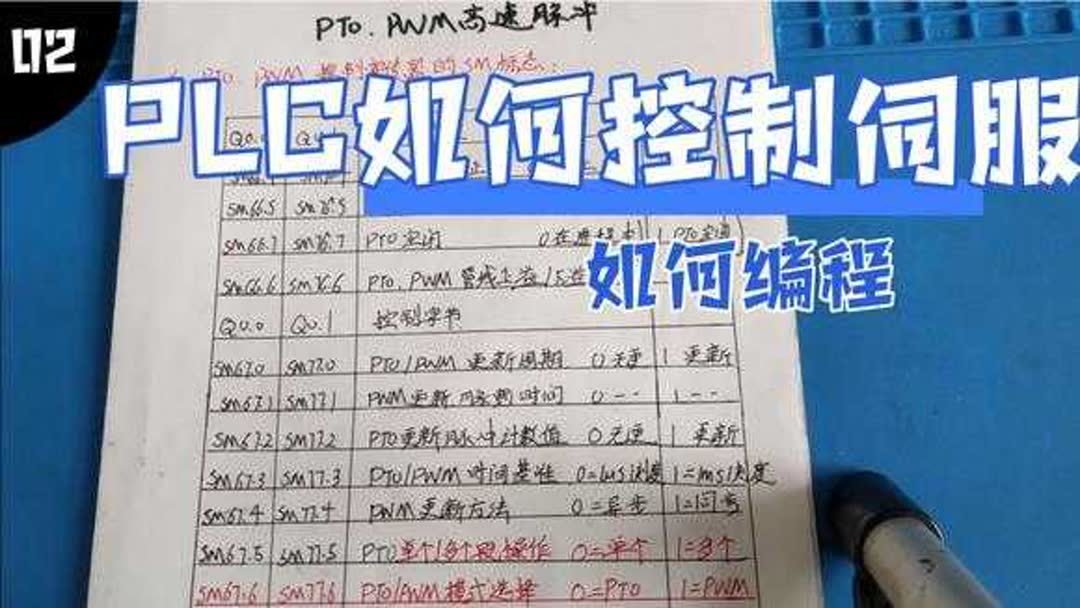 02
PTO、PWM高速脉冲
PTO、PWM 的SM标志:
PLC如何控制伺服
如何编程
Q0.0
SM66.5 SM76.5
SM66.7 SM76.7 PTO空闲 0在进程中 1 PTO空闲
SM66.6 SM76.6 PTO、PWM管线上溢/下溢
Q0.0 Q0.1 控制字节
SM67.0 SM77.0 PTO/PWM 更新周期 0无更 1 更新
SM67.1 SM77.1 PWM更新脉宽时间 0 -- 1 --
SM67.2 SM77.2 PTO更新脉冲计数值 0无更 1 更新
SM67.3 SM77.3 PTO/PWM 时间基准 0=1us/刻度 1=1ms/刻度
SM67.4 SM77.4 PWM更新方法 0=异步 1=同步
SM67.5 SM77.5 PTO单个/多个段操作 0=单个 1=多个
SM67.6 SM77.6 PTO/PWM模式选择 0=PTO 1=PWM